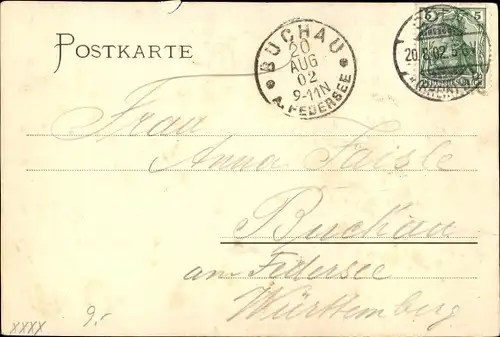 POSTKARTE
BUCHAU
20
AUG
02
9-11N
A. FEDERSEE
5 5
20.8.02. 5-6N
Frau
Anna Faisle
Buchau
am Federsee
Württemberg
9.-
XXXX